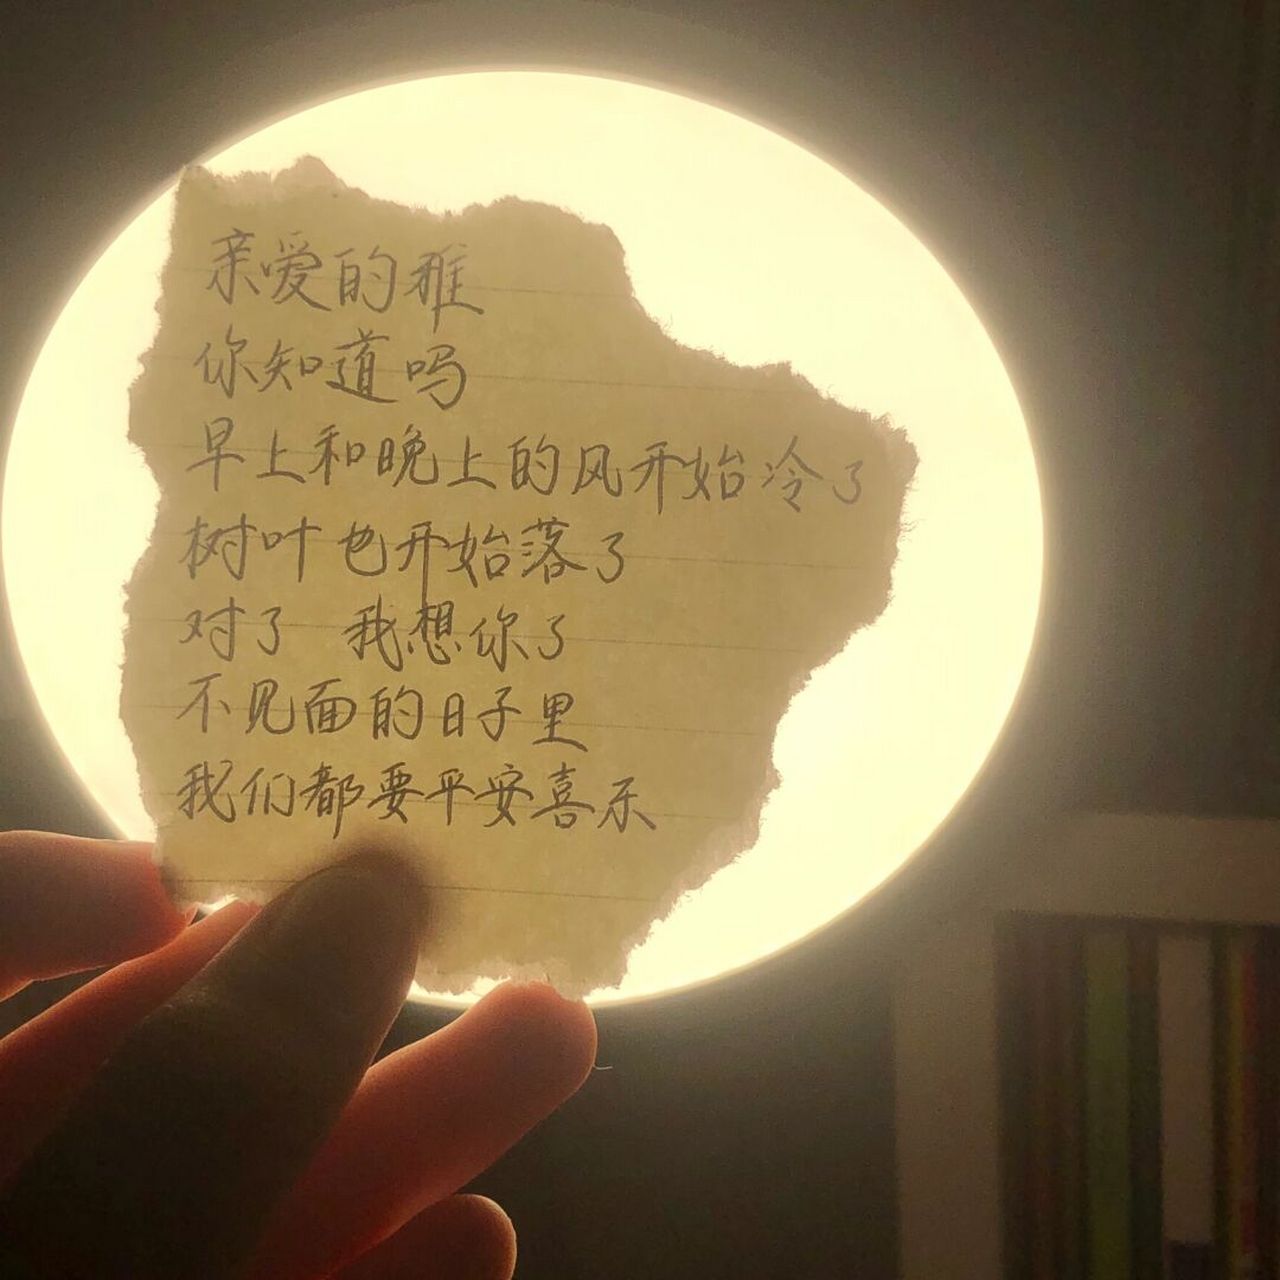 亲爱的雅
你知道吗
早上和晚上的风开始冷了
树叶也开始落了
对了 我想你了
不见面的日子里
我们都要平安喜乐